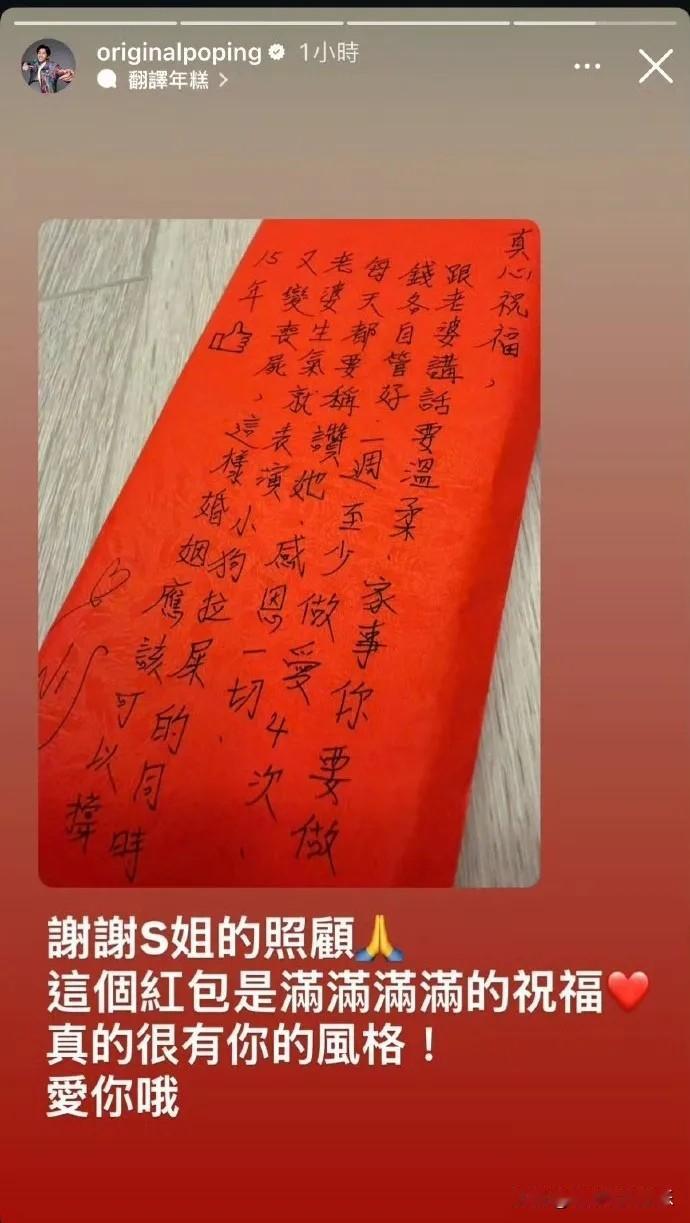 originalpoping 1小時
翻譯年糕 >
真心祝福，
跟老婆講話要溫柔、家事你要做
錢各自管好 一週至少做愛4次、
每天都要稱讚她、感恩一切、
老婆生氣就表演小狗拉屎的同時
又變喪屍，這樣婚姻應該可以撐
15年
謝謝S姐的照顧🙏
這個紅包是滿滿滿滿的祝福❤️
真的很有你的風格！
愛你哦